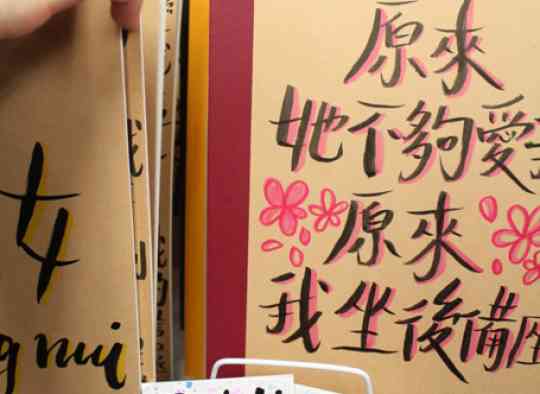 原來
她不夠愛我
原來
我坐後備座
女
g nui